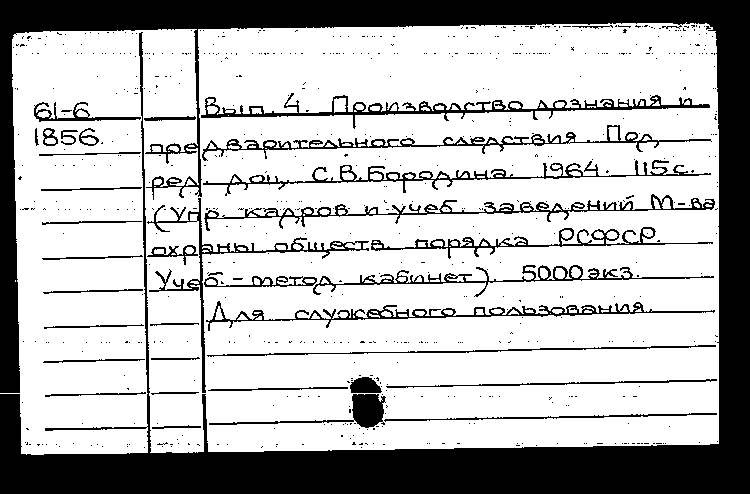 61-6 Вып. 4. Производство дознания и
1856. предварительного следствия. Под
ред. доц. С.В.Бородина. 1964. 115с.
(Упр. кадров и учеб. заведений М-ва
охраны обществ. порядка РСФСР.
Учеб.-метод. кабинет). 5000экз.
Для служебного пользования.